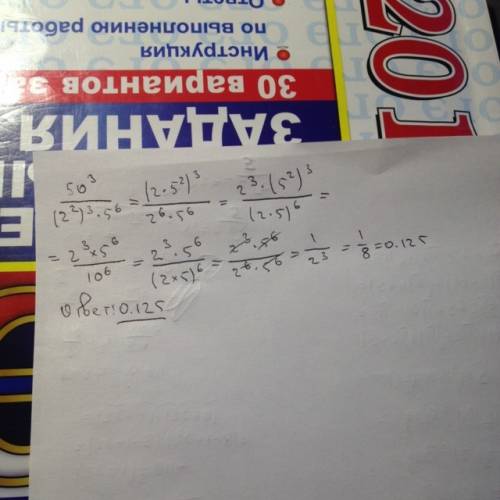 • Ответы
• Инструкция
по выполнению работы
30 вариантов за
ЗАДАНИЯ
201
50³/((2²)³·5⁶) = (2·5²)³/(2⁶·5⁶) = 2³·(5²)³/(2·5)⁶ =
= 2³×5⁶/10⁶ = 2³·5⁶/(2×5)⁶ = 2³·5⁶/(2⁶·5⁶) = 1/2³ = 1/8 = 0.125
Ответ: 0.125